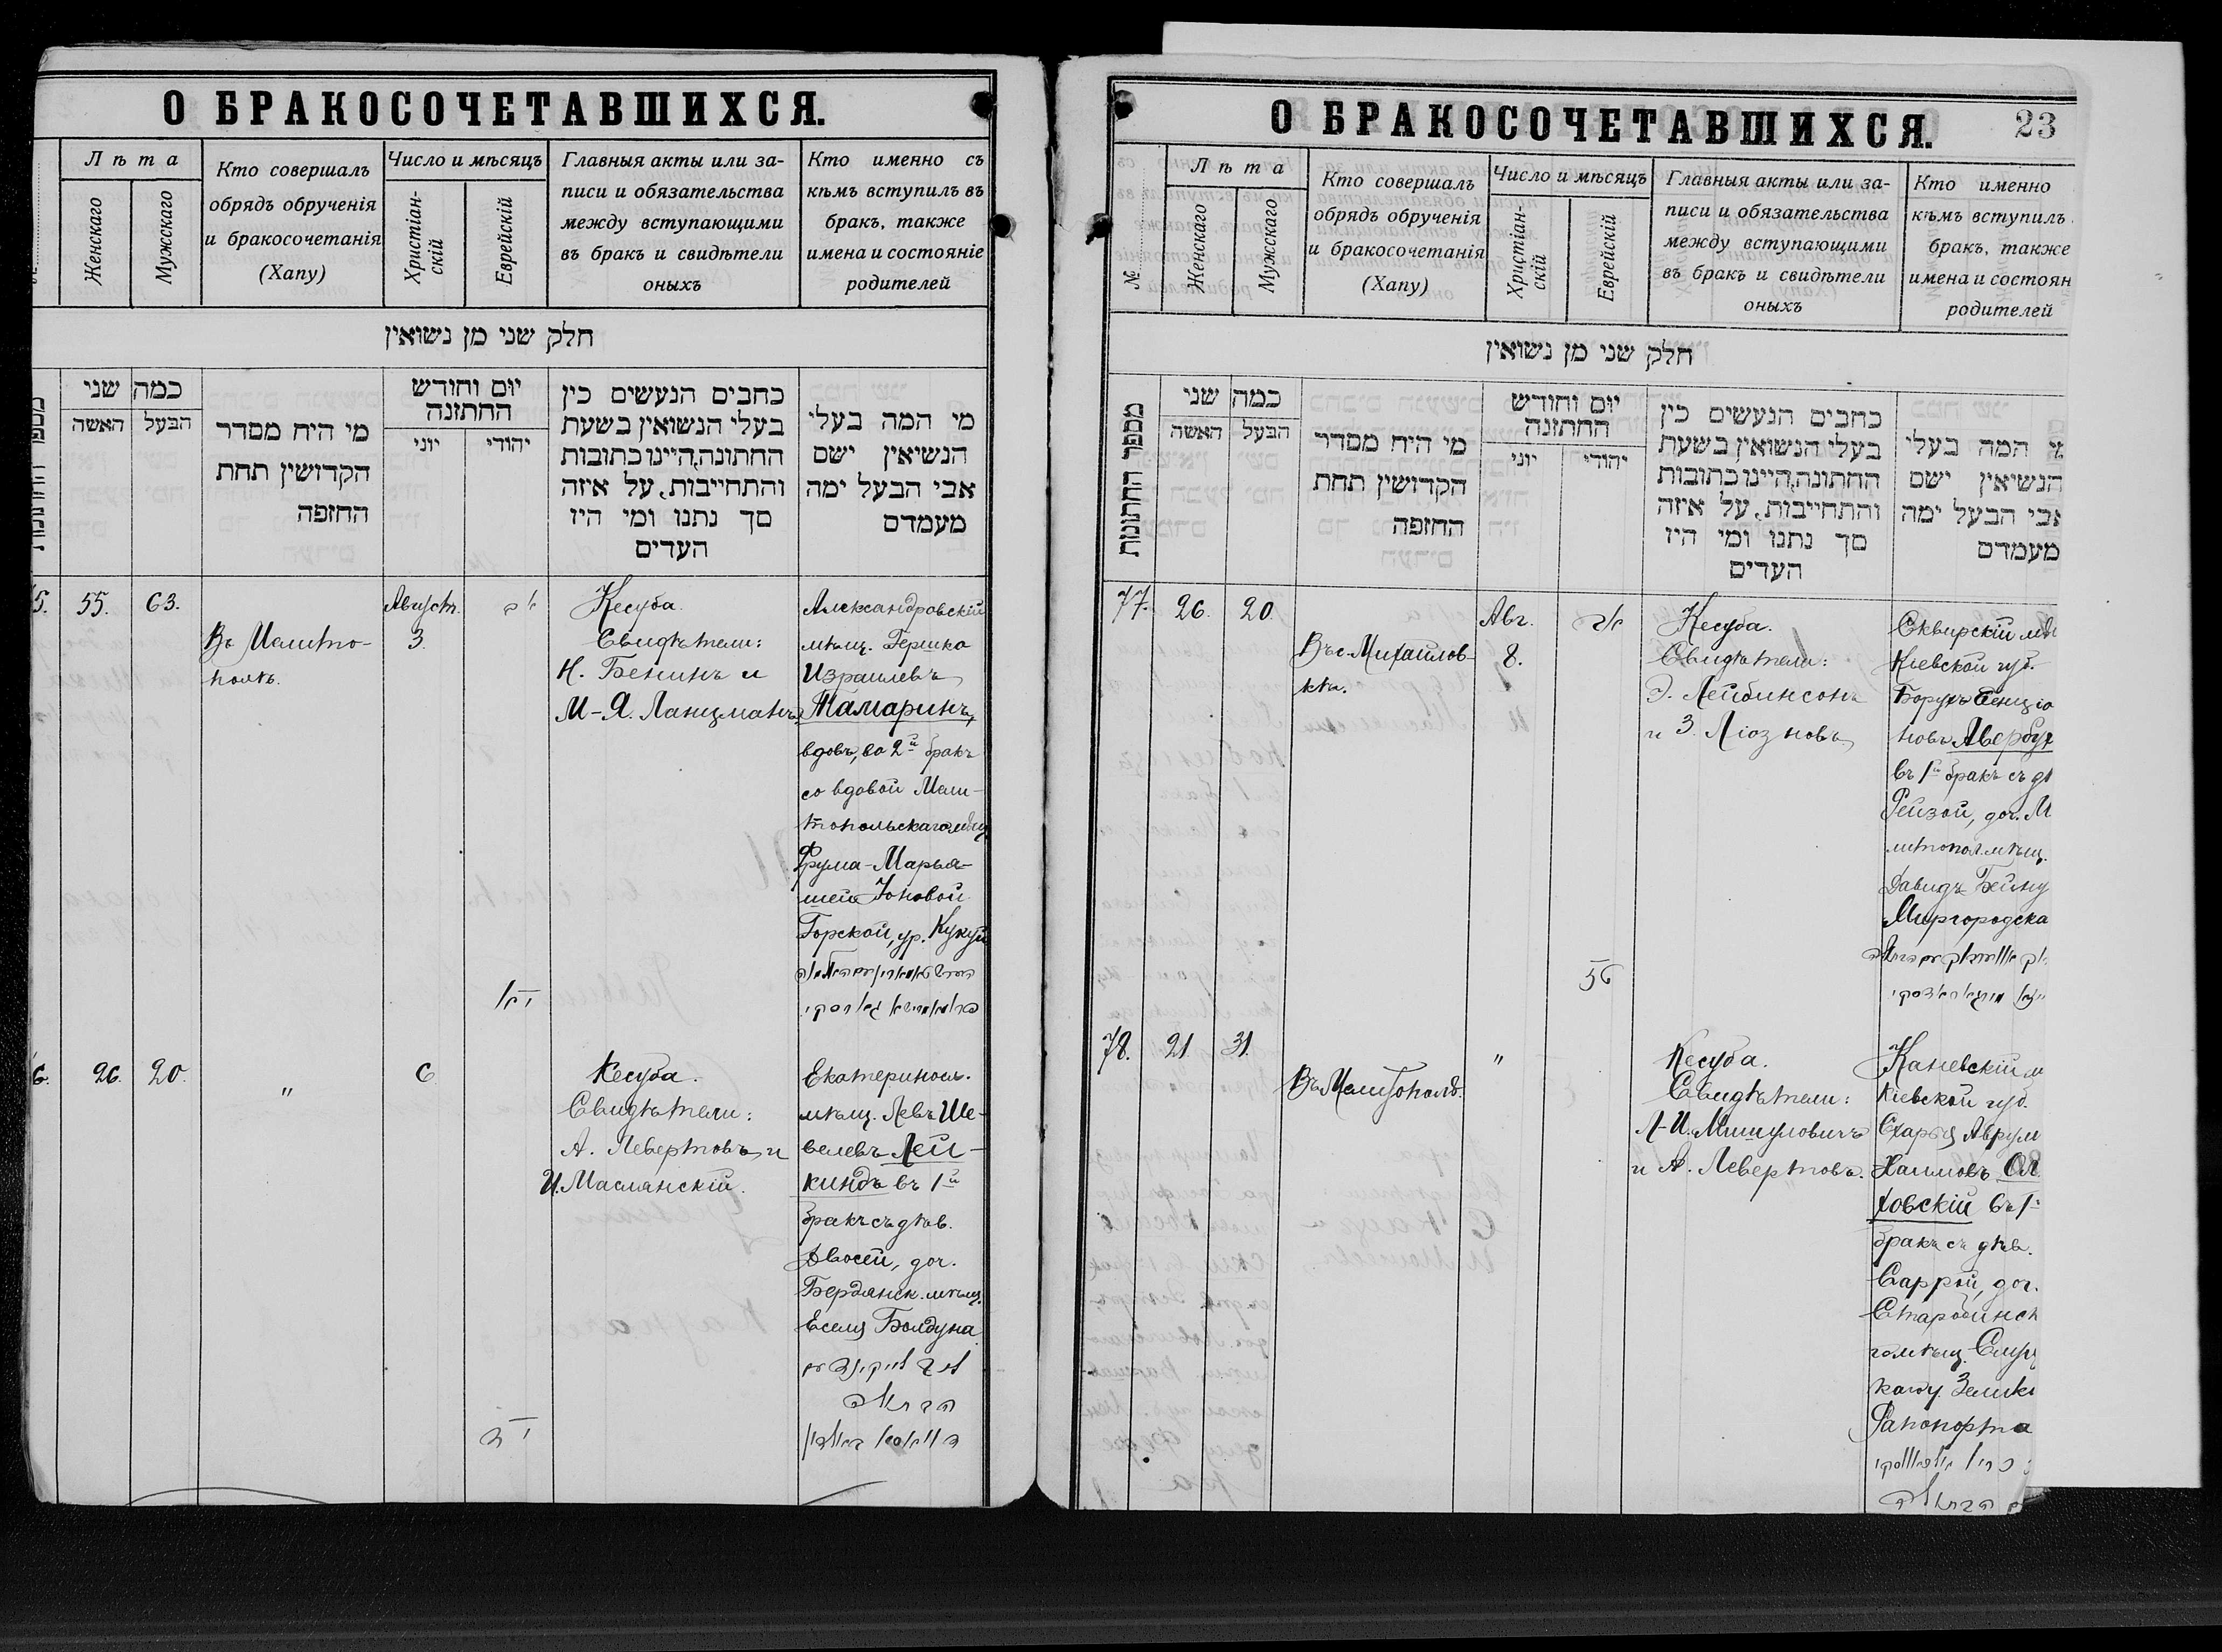 О БРАКОСОЧЕТАВШИХСЯ.
Лѣта
Женскаго
Мужскаго
Кто совершалъ
обрядъ обрученія
и бракосочетанія
(Хапу)
Число и мѣсяцъ
Христіан-
скій
Еврейскій
Главныя акты или за-
писи и обязательства
между вступающими
въ бракъ и свидѣтели
оныхъ
Кто именно съ
кѣмъ вступилъ въ
бракъ, также
имена и состояніе
родителей
חלק שני מן נשואין
כמה שני
האשה
הבעל
מי היח מסדר
הקדושין תחת
החזפה
יום וחודש
החתזנה
יוני
יהודי
כחבים הנעשים כין
בעלי הנשואין בשעת
החתונה,היינו כתובות
והתחייבות, על איזה
סך נתנו ומי היז
העדים
מי המה בעלי
הנשיאין ישם
אבי הבעל ימה
מעמדם
5. 55. 63.
Въ Мелито-
полѣ.
Август.
3.
Кесуба.
Свидѣтели:
Н. Бенинъ и
М-Я. Ланцманъ
Александровскій
мѣщ. Гершко
Израилевъ
Тамаринъ,
вдовъ, во 2й бракъ
со вдовой Мели-
топольскаго мѣщ.
Фрума-Марья-
шей Юновой
Горской, ур. Кукуй
6. 26. 20.
"
6
Кесуба.
Свидѣтели:
А. Левертовъ и
И. Маслянскій.
Екатериносл.
мѣщ. Левъ Ше-
велевъ Лей-
киндъ въ 1й
бракъ съ дѣв.
Двосей, доч.
Бердянск. мѣщ.
Еселя Болдуна
О БРАКОСОЧЕТАВШИХСЯ.
23
№
Лѣта
Женскаго
Мужсскаго
Кто совершалъ
обрядъ обрученія
и бракосочетанія
(Хапу)
Число и мѣсяцъ
Христіан-
скій
Еврейскій
Главныя акты или за-
писи и обязательства
между вступающими
въ бракъ и свидѣтели
оныхъ
Кто именно
кѣмъ вступилъ
бракъ, также
имена и состоян
родителей
חלק שני מן נשואין
מספר החתונות
כמה שני
האשה
הבעל
מי היח מסדר
הקדושין תחת
החזפה
יום וחודש
החתזנה
יוני
יהודי
כחבים הנעשים כין
בעלי הנשואין בשעת
החתונה,היינו כתובות
והתחייבות, על איזה
סך נתנו ומי היז
העדים
המה בעלי
הנשיאין ישם
אבי הבעל ימה
מעמדם
77. 26. 20.
Въ с. Михайлов-
кѣ.
Авг.
8.
Кесуба.
Свидѣтели:
Э. Лейбинсонъ
и З. Ліозновъ
Сквирскій мѣ
Кіевской губ.
Борухъ Бенціо
новъ Авербух
въ 1й бракъ съ дѣ
Рейзой, доч. М
литопол. мѣщ.
Давидъ Бейну
Миргородска
78. 21. 31.
Въ Мелитополѣ.
"
Кесуба.
Свидѣтели:
Л-И. Мишуловичъ
и А. Левертовъ.
Каневскій м
Кіевской губ.
Аврум
Хаимовъ
ховскій въ 1й
бракъ съ дѣв.
Саррой, доч.
Старобинск
го мѣщ. Слуц
Рапопорта